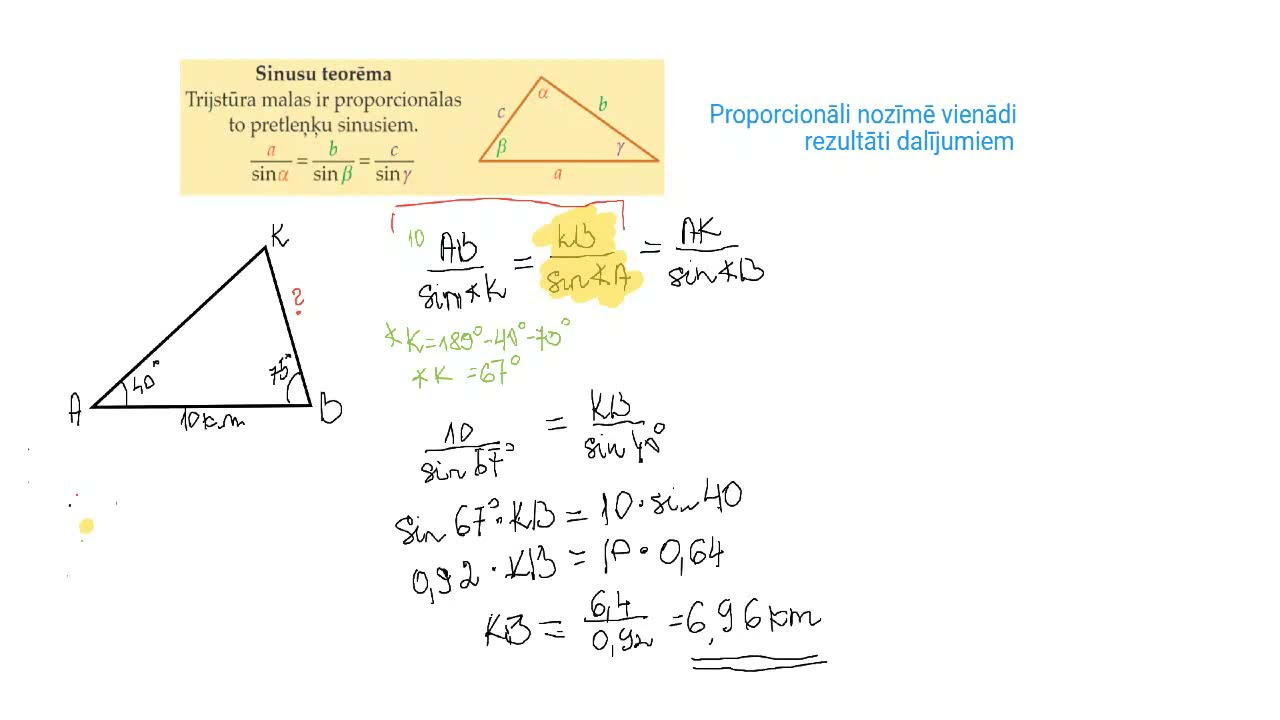 Sinusu teorēma
Trijstūra malas ir proporcionālas
to pretleņķu sinusiem.
a/sin α = b/sin β = c/sin γ
α
c
b
β
γ
a
Proporcionāli nozīmē vienādi
rezultāti dalījumiem
K
?
40°
A
10 km
B
10
AB/sin∢K = KB/sin∢A = AK/sin∢B
∢K = 180° - 40° - 73°
∢K = 67°
10/sin 67° = KB/sin 40°
sin 67° · KB = 10 · sin 40
0,92 · KB = 10 · 0,64
KB = 6,4/0,92 = 6,96 km